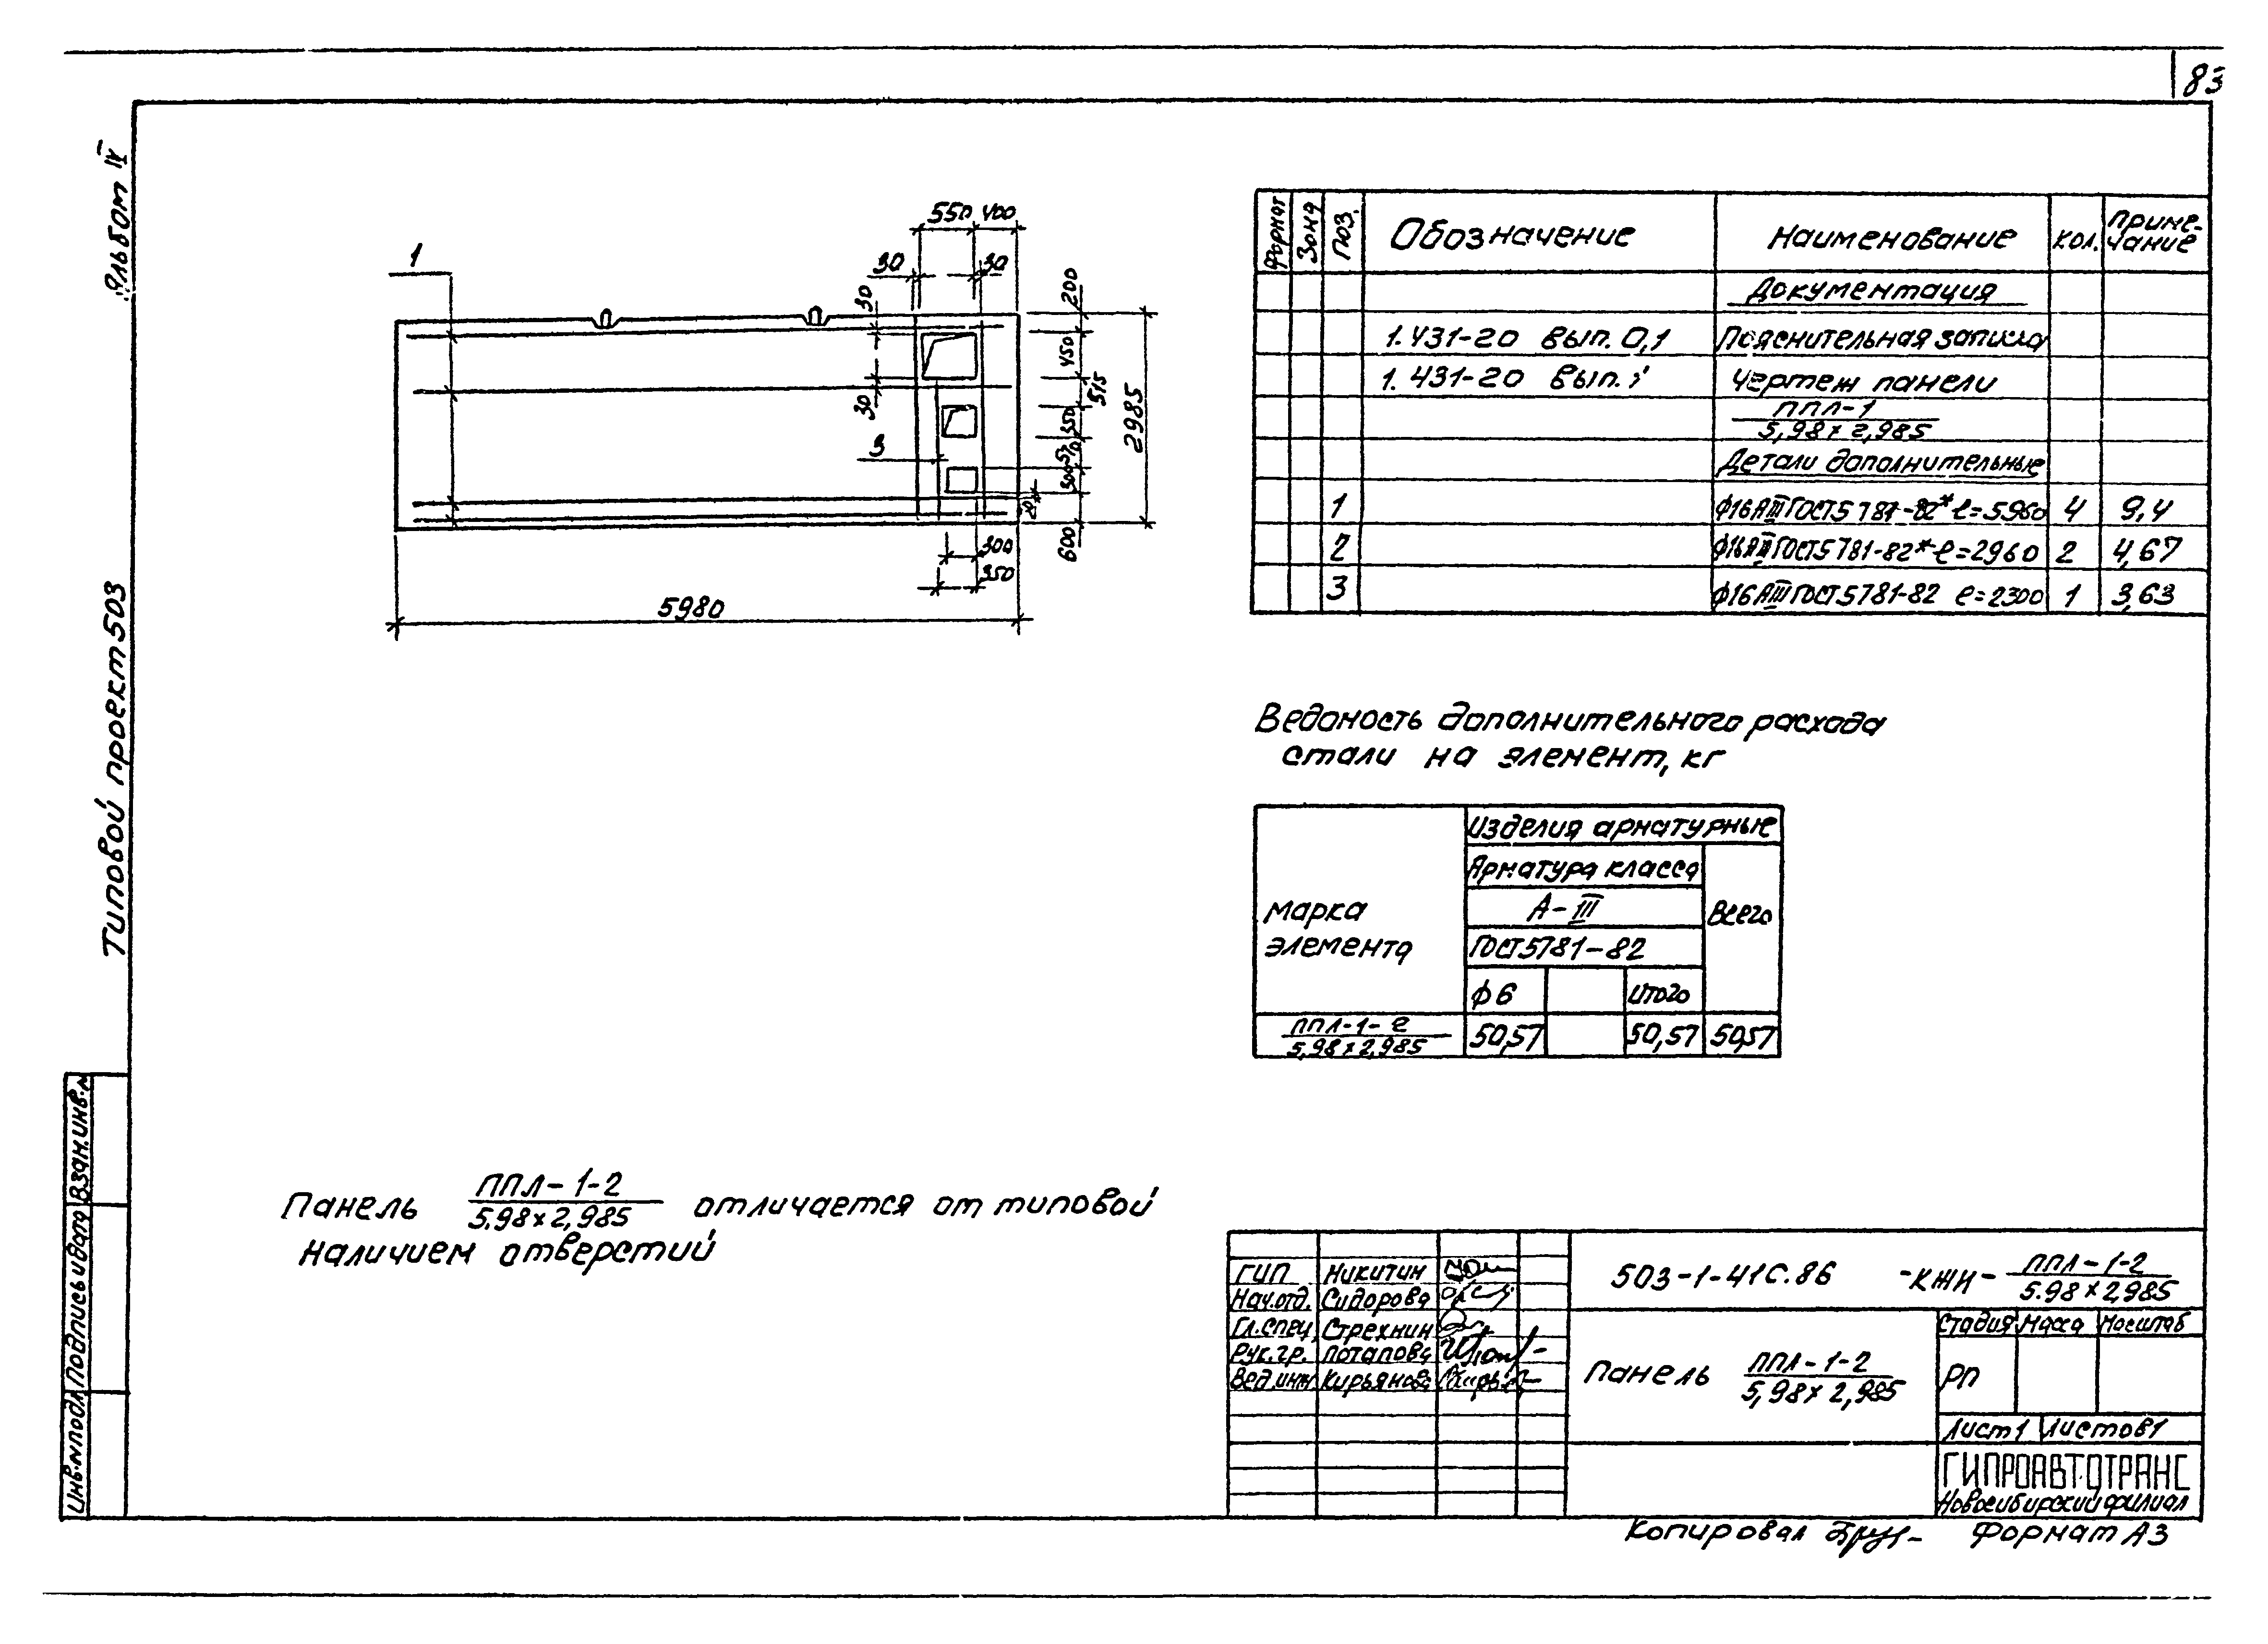 83
Альбом IV
Типовой проект 503
Взам.инв.N
Подпись и дата
Инв.N подл.
1
550 400
30 30
30
30
3
200
450
515
350
300
600
2985
300
350
5980
Формат Зона Поз. Обозначение Наименование Кол. Приме-
чание
Документация
1.431-20 вып. 0,1 Пояснительная записка
1.431-20 вып. 1 Чертеж панели
ППЛ-1
5,98 x 2,985
Детали дополнительные
1 ф16АIII ГОСТ5781-82* ℓ=5960 4 9,4
2 ф16АIII ГОСТ5781-82* ℓ=2960 2 4,67
3 ф16АIII ГОСТ5781-82 ℓ=2300 1 3,63
Ведомость дополнительного расхода
стали на элемент, кг
Марка
элемента
Изделия арматурные
Арматура класса
А-III
ГОСТ5781-82
Всего
ф6 Итого
ППЛ-1-2
5,98 x 2,985
50,57 50,57 50,57
Панель ППЛ-1-2
5.98 x 2,985 отличается от типовой
наличием отверстий
ГИП Никитин
Нач.отд. Сидорова
Гл.спец. Стрехнин
Рук.гр. Потапова
Вед.инж Кирьянова
503-1-41С.86 -КЖИ- ППЛ-1-2
5.98 x 2,985
Панель ППЛ-1-2
5,98 x 2,985
Стадия Масса Масштаб
РП
Лист 1 Листов 1
ГИПРОАВТОТРАНС
Новосибирский филиал
Копировал Формат А3